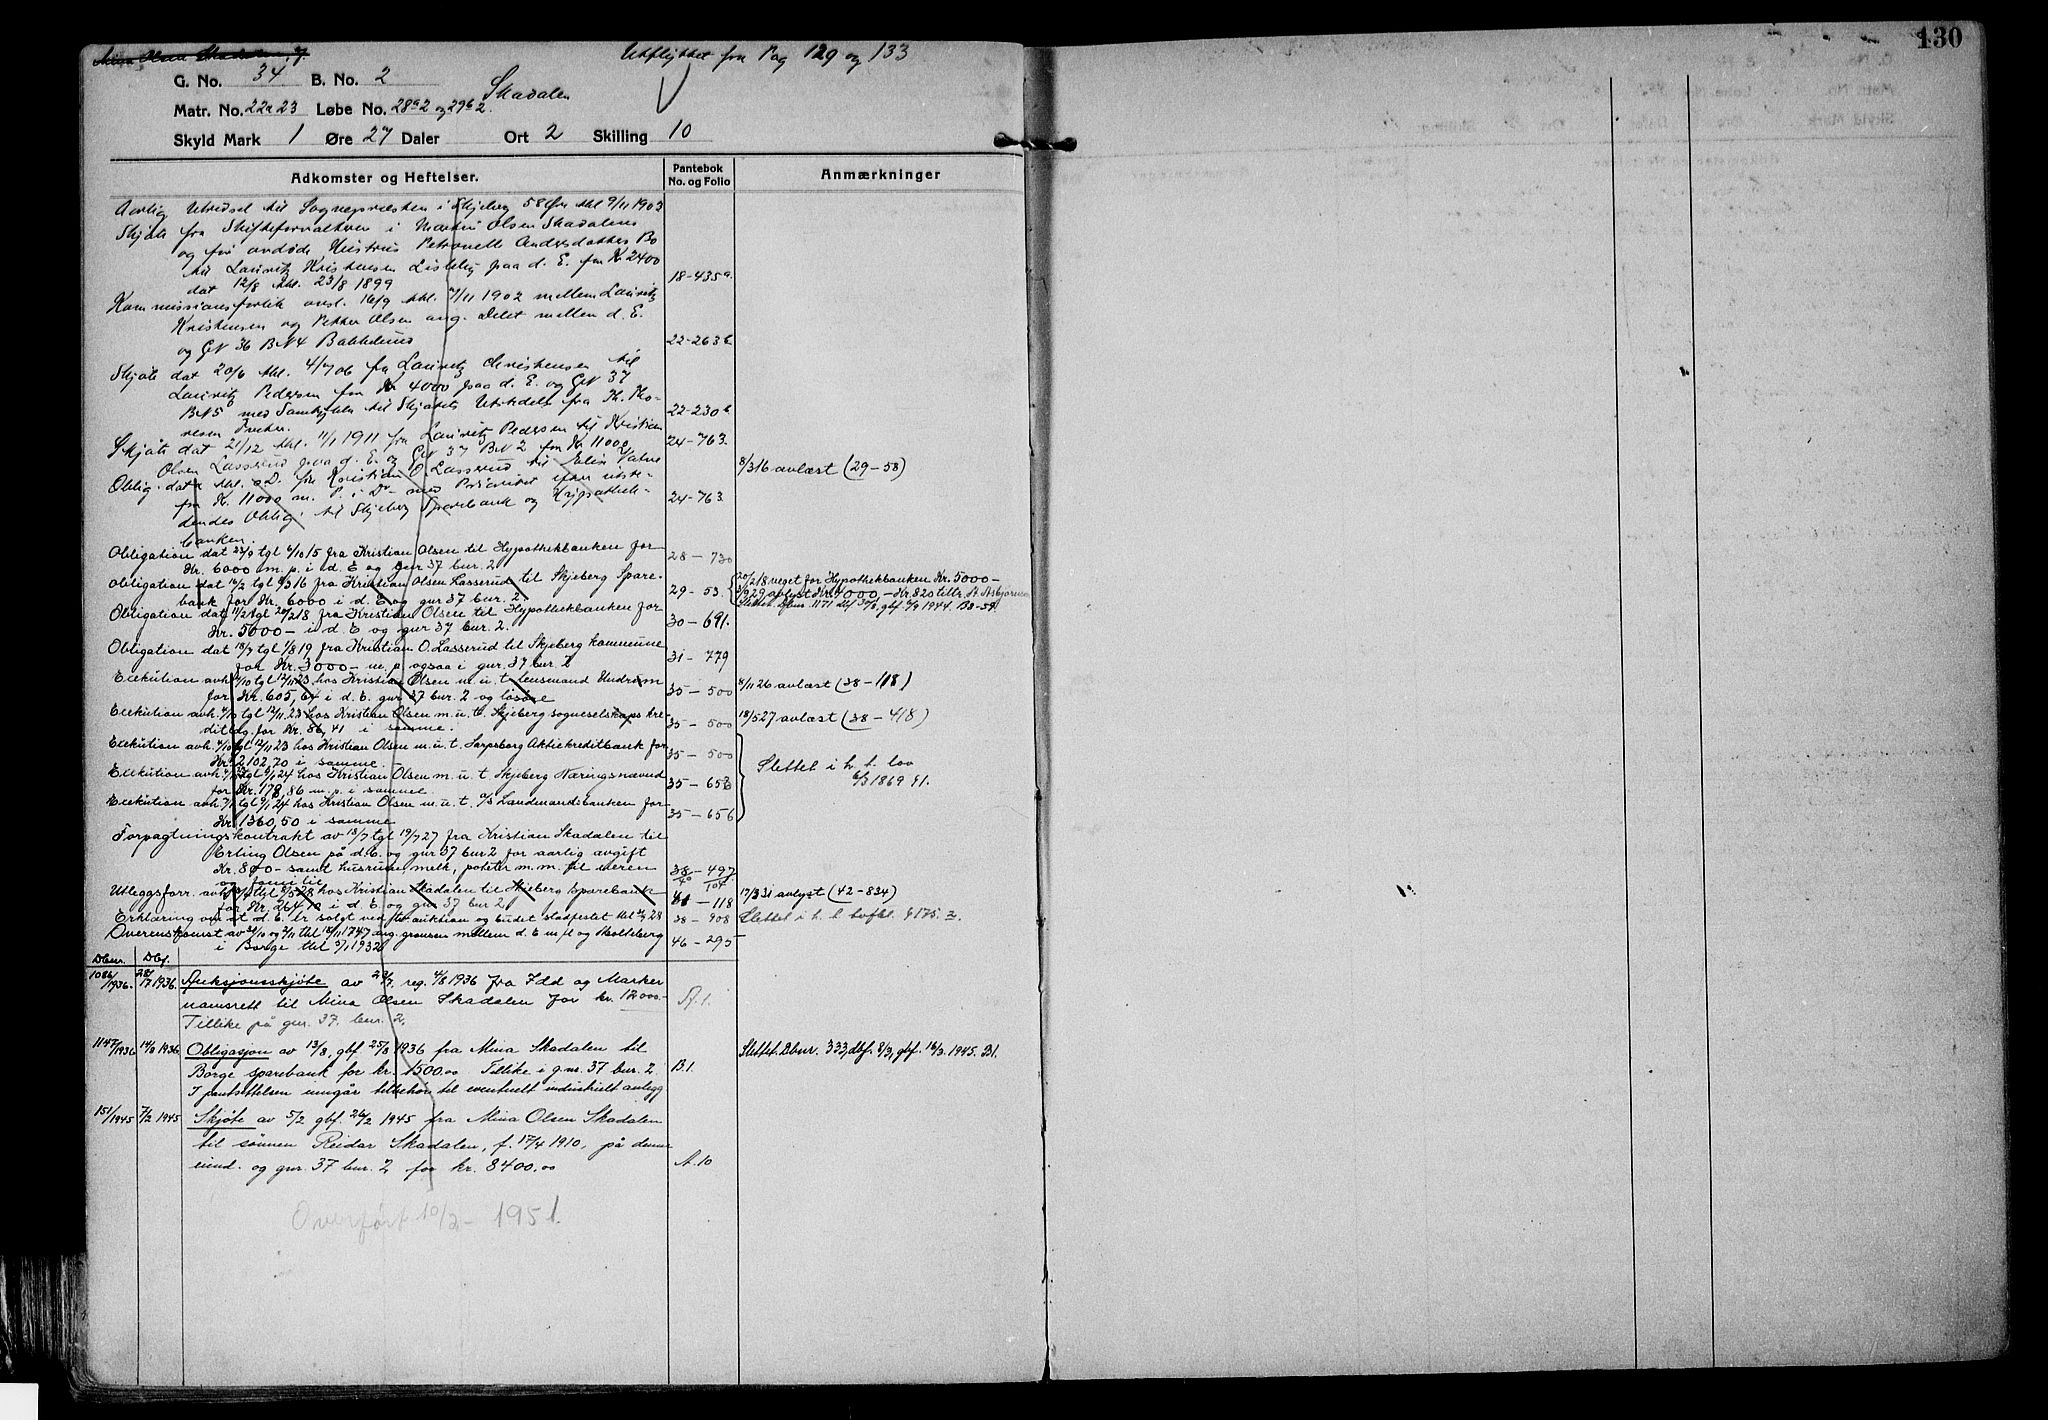 130
Utflyttet fra Pag 129 og 133
G. No. 34 B. No. 2
Skadalen
Matr. No. 22a 23 Løbe No. 28a2 og 29b2.
Skyld Mark 1 Øre 27 Daler Ort 2 Skilling 10
Adkomster og Heftelser. Pantebok No. og Folio Anmærkninger
Aarlig Utredsel til Sognepræsten i Skjeberg 58 Øre thl 9/11 1903
Skjøte fra Skifteforvalteren i Martin Olsen Skadalens
og før avdøde Hustrus Petronelle Andersdatters Bo
til Lauritz Kristensen Lisleby paa d. E. for Kr 2400
dat 12/8 thl. 23/8 1899 18-435a.
Kommissionsforlik avsl. 16/9 thl. 1902 mellem Lauritz
Kristensen og Petter Olsen ang. Delet mellem d. E.
og GN 36 BN4 Bakkelund 22-263b
Skjøte dat 20/6 thl. 4/7 06 fra Lauritz Christensen til
Lauritz Pedersen for Kr 4000 paa d. E. og GN 37
BN5 med Samtykke til Skjøtets Utstedelse fra Th. Tho-
resen Tveter. 22-230b.
Skjøte dat 21/12 thl. 11/1 1911 fra Lauritz Pedersen til Kristian
Olsen Lasserud paa d. E. og GN 37 BN 2 for Kr 11000 24-763.
Oblig. dat & thl. s.D. fra Kristian O. Lasserud til Elise Valve
for K. 11000 m. P. i Do med Prioritet efter utste-
dendes Oblig. til Skjeberg Sparebank og Hypothek-
banken. 24-763. 8/3 16 avlæst (29-58)
Obligation dat 23/9 tgl 6/10 15 fra Kristian Olsen til Hypothekbanken for
Kr. 6000 m. p. i d. E og gnr 37 bnr. 2 28-730
Obligation dat 16/2 tgl 8/3 16 fra Kristian Olsen Lasserud til Skjeberg Spare-
bank for Kr. 6000 i d. E og gnr 37 bnr. 2. 29-53. 20/2 18 veget for Hypothekbanken Kr. 5000-
avlyst Kr. 4000,- Kr 820 tiltr.
Slettet. Dbnr. 1171 1944.
Obligation dat 11/2 tgl 20/2 18 fra Kristian Olsen til Hypothekbanken for
Kr. 5000- i d. E og gnr 37 bnr. 2. 30-691.
Obligation dat 18/7 tgl 1/8 19 fra Kristian O. Lasserud til Skjeberg kommune
for Kr. 3000- m. p. ogsaa i gnr. 37 bnr. 2 31-779
Exekution avh. 4/10 tgl 12/11 23 hos Kristian Olsen m. u. t. lensmand Hudrem
for Kr. 605,64 i d. E. gnr 37 bnr. 2 og løsøre 35-500 8/11 26 avlæst (38-118)
Exekution avh. 4/10 tgl 12/11 23 hos Kristian Olsen m. u. t. Skjeberg sogneselskaps kre-
ditlag. for Kr. 86,41 i samme. 35-500 18/5 27 avlæst (38-418)
Exekution avh. 4/10 tgl 12/11 23 hos Kristian Olsen m. u. t. Sarpsborg Aktiekreditbank for
Kr. 2102,70 i samme. 35-500
Exekution avh. tgl 9/1 24 hos Kristian Olsen m. u. t. Skjeberg Næringsnævnd
for Kr. 178,86 m. p. i samme. 35-656 Slettet i h. t. lov
6/3 1869 § 1.
Exekution avh. tgl 9/1 24 hos Kristian Olsen m. u. t. A/S Landmandsbanken for
Kr. 1360,50 i samme 35-656
Forpagtningskontrakt av 18/7 tgl 19/7 27 fra Kristian Skadalen til
Erling Olsen på d. E. og gnr 37 bnr 2 for aarlig avgift
Kr. 800- samt husrum, melk, poteter m. m. til eieren
og familie 38-497
40 104
Utleggsforr. avh. tgl 28 hos Kristian Skadalen til Skjeberg Sparebank
for Kr. 264,10 i d. E. og gnr 37 bnr 2 41-118 17/3 31 avlyst (42-834)
Erklæring om at d. E. er solgt ved tv. auktion og budet stadfestet 28 38-908 Slettet i h. t. tvfbl. § 175. 2.
Overenskomst av 30/10 og 7/11 thl 18/11 1747 ang. grænsen mellem d. E m fl og Skolteberg
i Borge thl 5/1 1932 46-295
Dbnr. Dbf.
1086/1936. 28/7 1936 Auksjonsskjøte av 22/7, reg. 4/8 1936 fra Idd og Marker
namsrett til Mina Olsen Skadalen for kr. 12000.- A. 1.
Tillike på gnr. 37, bnr. 2.
1147/1936 14/8 1936. Obligasjon av 13/8, gbf. 25/8 1936 fra Mina Skadalen til Slettet. Dbnr. 333, dbf. 8/3, gbf. 16/3. 1945. B1.
Borge sparebank for kr. 1500.00 Tillike i g.nr. 37 bnr. 2 B.1.
I pantsettelsen inngår tilbehør til eventuelt industrielt anlegg
151/1945 7/2 1945 Skjøte av 5/2 gbf. 26/2 1945 fra Mina Olsen Skadalen
til sønnen Reidar Skadalen, f. 17/4 1910, på denne
eiend. og gnr. 37 bnr. 2 for kr. 8400.00 A. 10
Overført 10/2 - 1951.